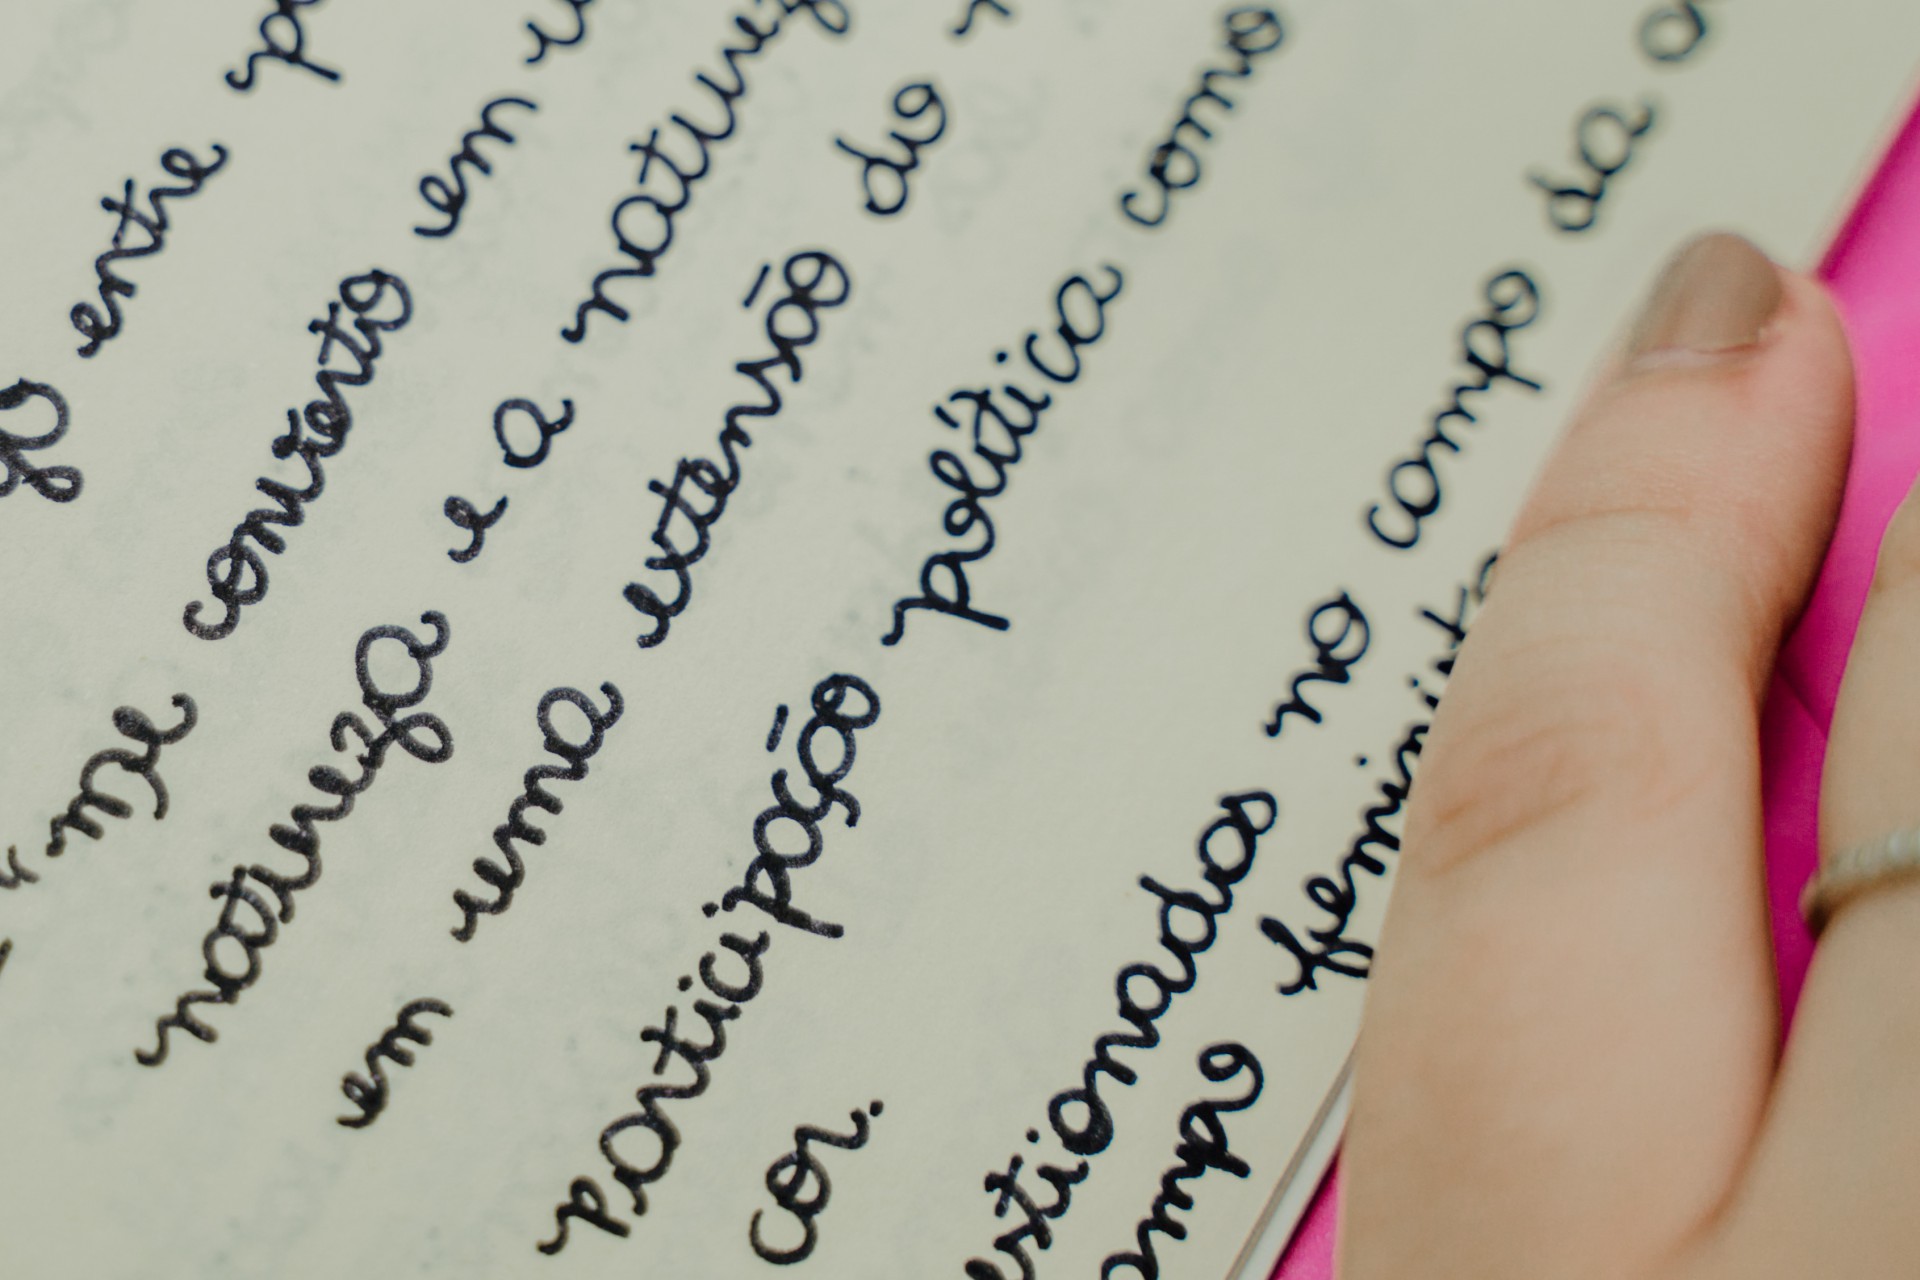 go entre
" me converto em
natureza e a naturez
em uma extensão do
participação política como
cor.
estionados no campo da
ampo feminist